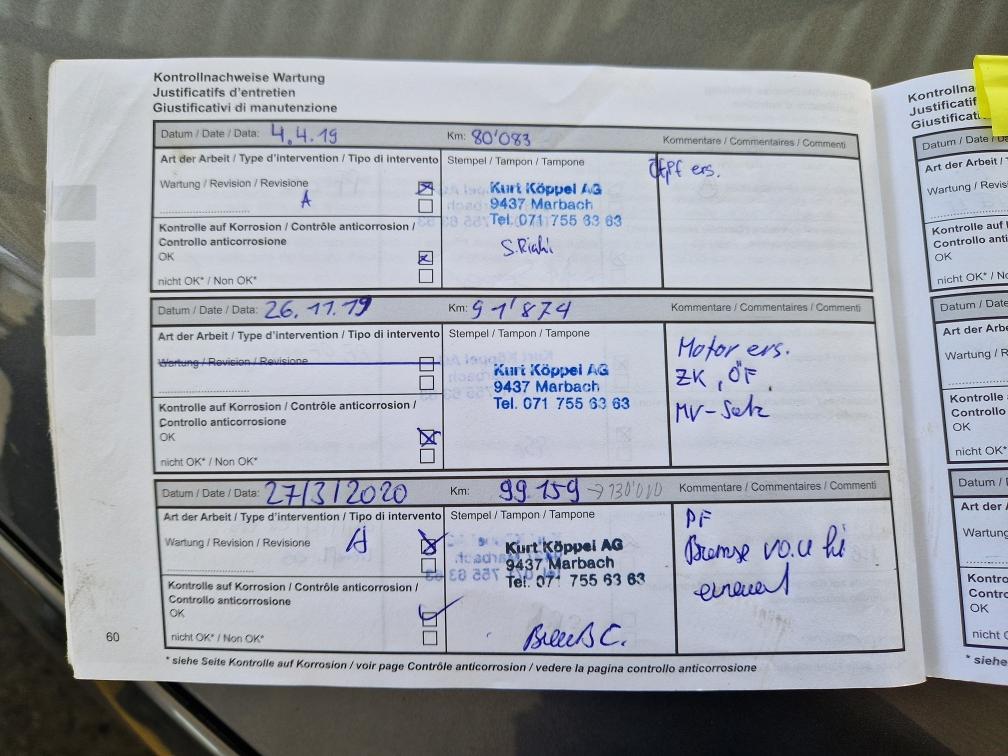 Kontrollnachweise Wartung
Justificatifs d'entretien
Giustificativi di manutenzione
Datum / Date / Data: 4.4.19 Km: 80'083 Kommentare / Commentaires / Commenti
Art der Arbeit / Type d'intervention / Tipo di intervento Stempel / Tampon / Tampone
ers.
Wartung / Revision / Revisione
A
Kurt Köppel AG
9437 Marbach
Tel. 071 755 63 63
Kontrolle auf Korrosion / Contrôle anticorrosion /
Controllo anticorrosione
OK
nicht OK* / Non OK*
Datum / Date / Data: 26.11.19 Km: 91'874 Kommentare / Commentaires / Commenti
Art der Arbeit / Type d'intervention / Tipo di intervento Stempel / Tampon / Tampone
Motor ers.
Wartung / Revision / Revisione
Kurt Köppel AG
9437 Marbach
Tel. 071 755 63 63
ZK, ÖF.
MV-Satz
Kontrolle auf Korrosion / Contrôle anticorrosion /
Controllo anticorrosione
OK
nicht OK* / Non OK*
Datum / Date / Data: 27/3/2020 Km: 99.159 → 130'010 Kommentare / Commentaires / Commenti
Art der Arbeit / Type d'intervention / Tipo di intervento Stempel / Tampon / Tampone
PF
Wartung / Revision / Revisione A
Kurt Köppel AG
9437 Marbach
Tel. 071 755 63 63
Bremse vo.u hi
erneuert
Kontrolle auf Korrosion / Contrôle anticorrosion /
Controllo anticorrosione
OK
nicht OK* / Non OK*
60
* siehe Seite Kontrolle auf Korrosion / voir page Contrôle anticorrosion / vedere la pagina controllo anticorrosione
Kontrollna
Justificatif
Giustificati
Datum / Date / Da
Art der Arbe
Wartung / Revisi
Kontrolle auf
Controllo anti
OK
nicht OK* / No
Datum / Date
Art der Arbe
Wartung / R
Kontrolle
Controllo
OK
nicht OK*
Datum / D
Art der A
Wartung
Kontro
Contro
OK
nicht O
* siehe